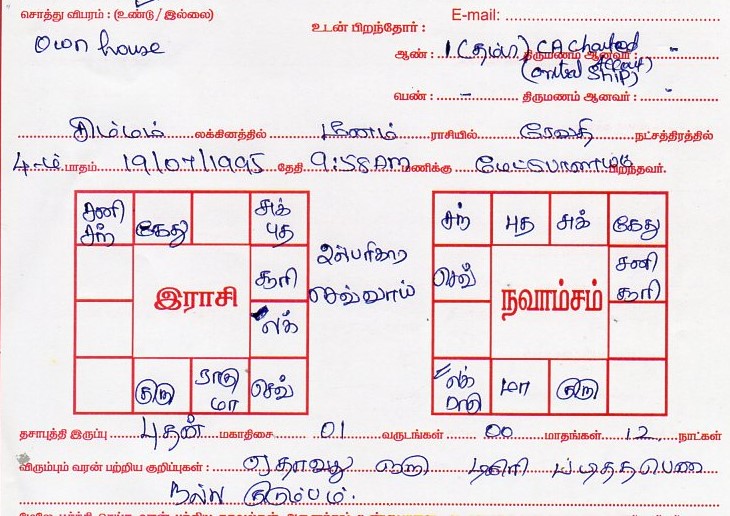 சொத்து விபரம் : (உண்டு / இல்லை) E-mail:
Own house உடன் பிறந்தோர் :
ஆண் : 1 (தம்பி) CA Charted திருமணம் ஆனவர் : -
பெண் : - திருமணம் ஆனவர் : -
சிம்மம் லக்கினத்தில் மீனம் ராசியில் ரேவதி நட்சத்திரத்தில்
4-ம் பாதம் 19/07/1995 தேதி 9:58 AM மணிக்கு பிறந்தவர்.
சனி சந் கேது சுக் புத
சூரி
லக்
இராசி
குரு ராகு மா செவ்
செவ்வாய்
சந் புத சுக் கேது
செவ் சனி சூரி
நவாம்சம்
லக் ராகு மா குரு
தசாபுத்தி இருப்பு புதன் மகாதிசை 01 வருடங்கள் 00 மாதங்கள் 12 நாட்கள்
விரும்பும் வரன் பற்றிய குறிப்புகள் : ஏதாவது ஒரு டிகிரி
நல்ல குடும்பம்.